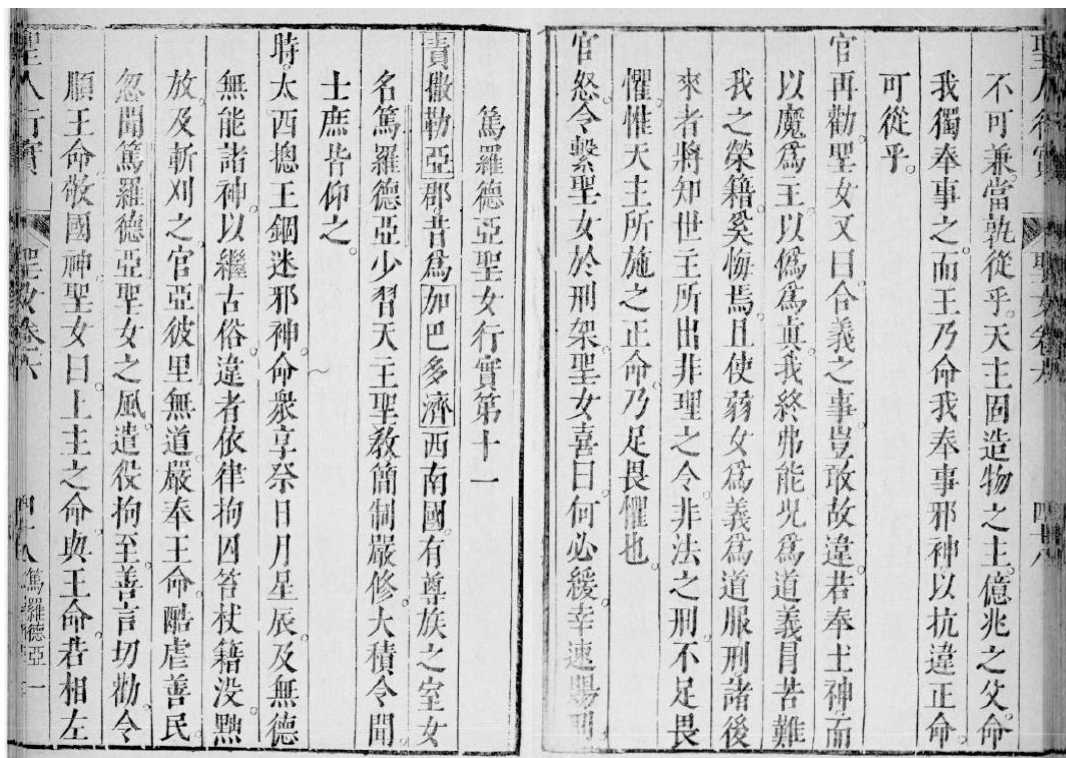 聖人行實 聖女卷六 四十八
不可兼當孰從乎。天主固造物之主。億兆之父。命
我獨奉事之。而王乃命我奉事邪神以抗違正命。
可從乎。
官再勸。聖女又曰。合義之事。豈敢故違。若奉土神而
以魔爲王。以僞爲眞。我終弗能。況爲道義冐苦難
我之榮籍。奚悔焉。且使弱女爲義爲道服刑。諸後
來者將知世主所出非理之令。非法之刑。不足畏
懼。惟天主所施之正命。乃足畏懼也。
官怒。令繫聖女於刑架。聖女喜曰。何必緩。幸速賜刑。
篤羅德亞聖女行實第十一
責撒勒亞郡昔爲加巴多濟西南國。有尊族之室女
名篤羅德亞。少習天主聖教。簡制嚴修。大積令聞。
士庶皆仰之。
時太西摠王錮迷邪神。命衆享祭日月星辰。及無德
無能諸神。以繼古俗。違者依律拘囚笞杖籍没。黥
放。及斬刈之。官亞彼里無道。嚴奉王命。酷虐善民。
忽聞篤羅德亞聖女之風。遣役拘至。善言切勸。令
順王命。敬國神。聖女曰。上主之命。與王命若相左
聖人行實 聖女卷六 四十八 篤羅德亞 一